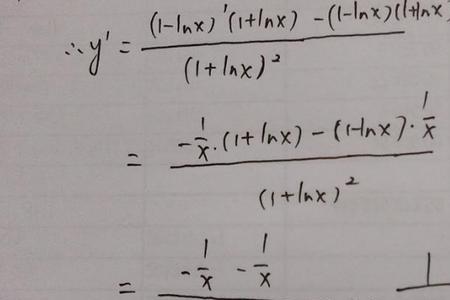 ∴ y' = ((1-lnx)'(1+lnx) - (1-lnx)(1+lnx) / (1+lnx)²
= (-1/x·(1+lnx) - (1-lnx)·1/x) / (1+lnx)²
= -1/x - 1/x